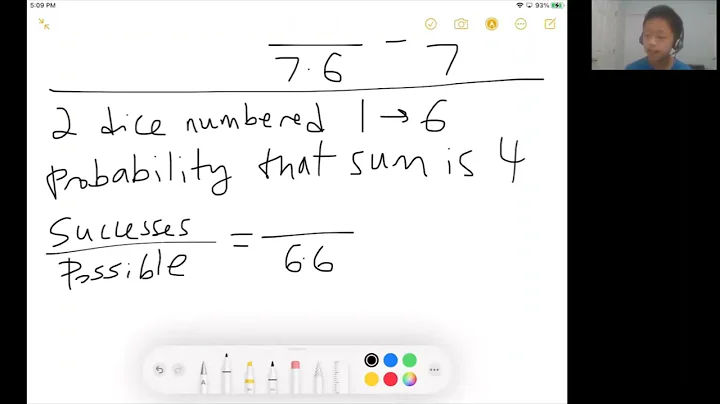 5:09 PM Fri Apr 8
93%
— = —
7·6 7
2 dice numbered 1 → 6
probability that sum is 4
Successes
= —
Possible 6·6
A